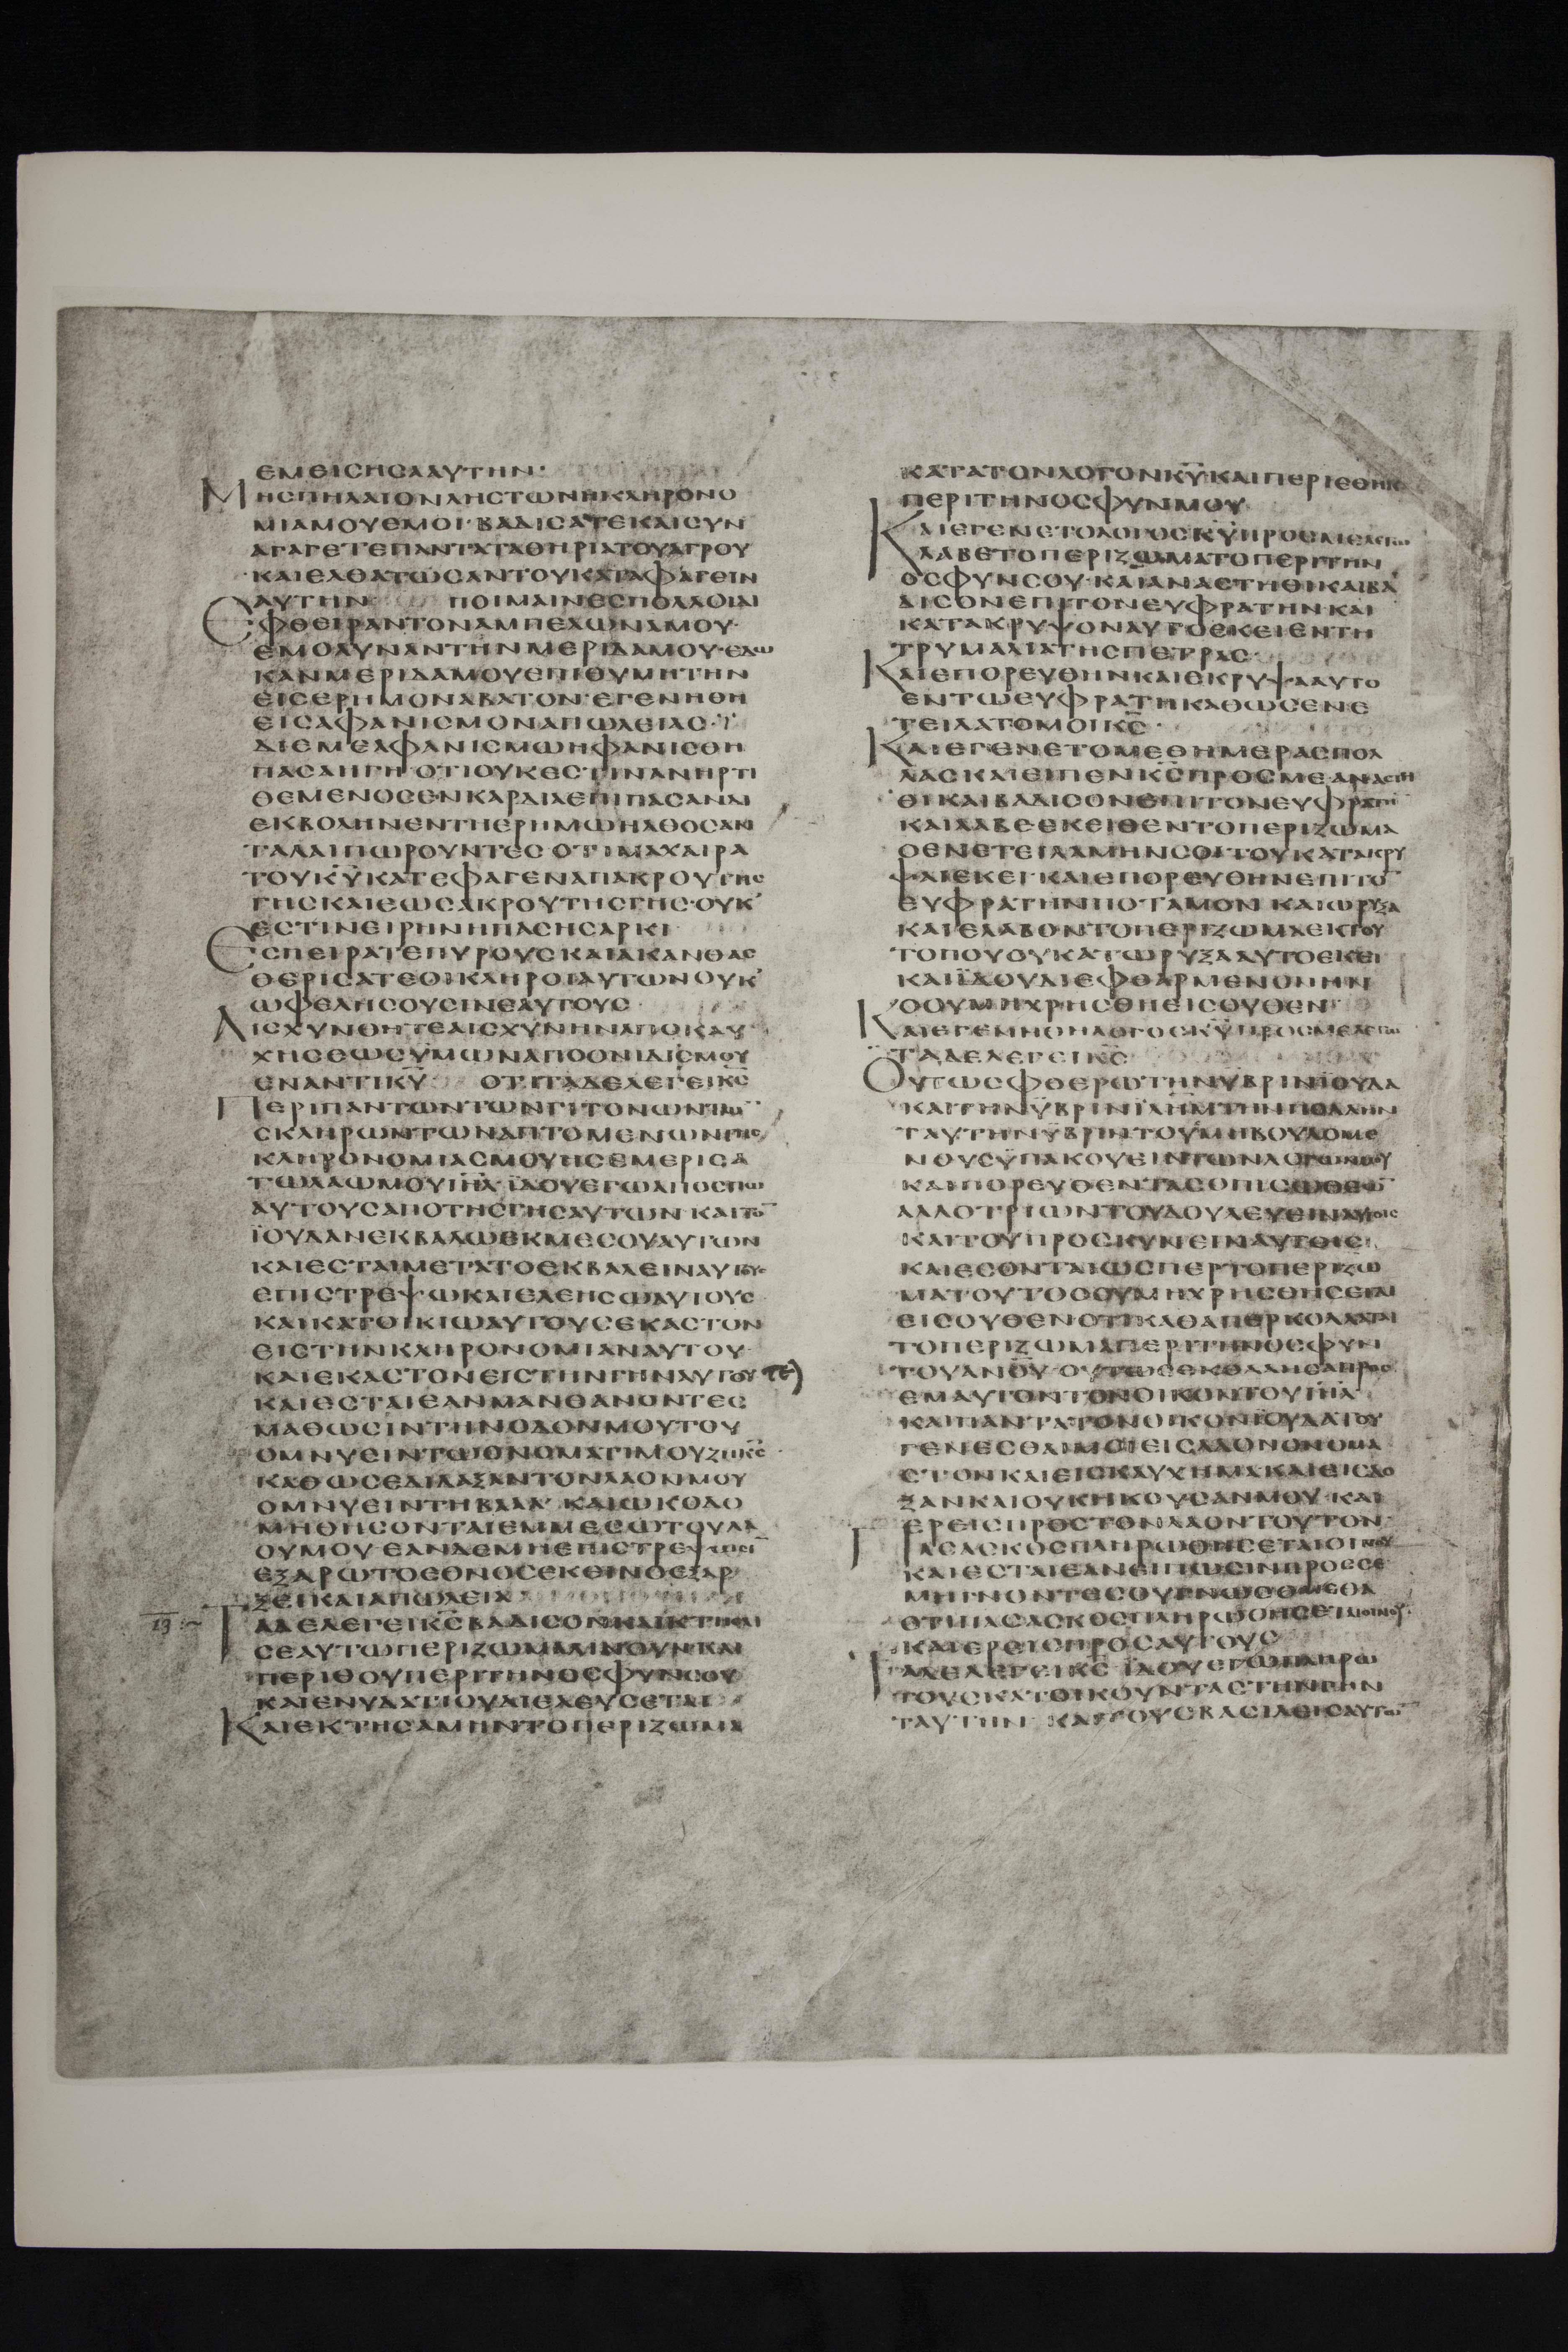 ΕΜΕΙCΗCΑΑΥΤΗΝ·
ΜΗCΠΗΛΑΙΟΝΛΗCΤΩΝΗΚΛΗΡΟΝΟ
ΜΙΑΜΟΥΕΜΟΙ·ΒΑΔΙCΑΤΕΚΑΙCΥΝ
ΑΓΑΓΕΤΕΠΑΝΤΑΤΑΘΗΡΙΑΤΟΥΑΓΡΟΥ
ΚΑΙΕΛΘΑΤΩCΑΝΤΟΥΚΑΤΑΦΑΓΕΙΝ
ΑΥΤΗΝ ΠΟΙΜΑΙΝΕCΠΟΛΛΟΙΔΙ
ΕΦΘΕΙΡΑΝΤΟΝΑΜΠΕΛΩΝΑΜΟΥ·
ΕΜΟΛΥΝΑΝΤΗΝΜΕΡΙΔΑΜΟΥ·ΕΔΩ
ΚΑΝΜΕΡΙΔΑΜΟΥΕΠΙΘΥΜΗΤΗΝ
ΕΙCΕΡΗΜΟΝΑΒΑΤΟΝ·ΕΓΕΝΗΘΗ
ΕΙCΑΦΑΝΙCΜΟΝΑΠΩΛΕΙΑC·
ΔΙΕΜΕΑΦΑΝΙCΜΩΗΦΑΝΙCΘΗ
ΠΑCΑΗΓΗ·ΟΤΙΟΥΚΕCΤΙΝΑΝΗΡΤΙ
ΘΕΜΕΝΟCΕΝΚΑΡΔΙΑΕΠΙΠΑCΑΝΔΙ
ΕΚΒΟΛΗΝΕΝΤΗΕΡΗΜΩΗΛΘΟCΑΝ
ΤΑΛΑΙΠΩΡΟΥΝΤΕC·ΟΤΙΜΑΧΑΙΡΑ
ΤΟΥΚΥ̅ΚΑΤΕΦΑΓΕΝΑΠΑΚΡΟΥΤΗC
ΓΗCΚΑΙΕΩCΑΚΡΟΥΤΗCΓΗC·ΟΥΚ
ΕCΤΙΝΕΙΡΗΝΗΠΑCΗCΑΡΚΙ
ΕCΠΕΙΡΑΤΕΠΥΡΟΥCΚΑΙΑΚΑΝΘΑC
ΘΕΡΙCΑΤΕΟΙΚΛΗΡΟΙΑΥΤΩΝΟΥΚ
ΩΦΕΛΗCΟΥCΙΝΕΑΥΤΟΥC
ΑΙCΧΥΝΘΗΤΕΑΙCΧΥΝΗΝΑΠΟΚΑΥ
ΧΗCΕΩCΥΜΩΝΑΠΟΟΝΙΔΙCΜΟΥ
ΕΝΑΝΤΙΚΥ̅ ΟΤΙΤΑΔΕΛΕΓΕΙΚC̅
ΠΕΡΙΠΑΝΤΩΝΤΩΝΓΙΤΟΝΩΝΤΩ̅
CΚΛΗΡΩΝΤΩΝΑΠΤΟΜΕΝΩΝΤΗC
ΚΛΗΡΟΝΟΜΙΑCΜΟΥΗCΕΜΕΡΙCΑ
ΤΩΛΑΩΜΟΥΙΗΛ̅·ΪΔΟΥΕΓΩΑΠΟCΠΩ
ΑΥΤΟΥCΑΠΟΤΗCΓΗCΑΥΤΩΝ·ΚΑΙΤΟ̅
ΪΟΥΔΑΝΕΚΒΑΛΩΕΚΜΕCΟΥΑΥΤΩΝ
ΚΑΙΕCΤΑΙΜΕΤΑΤΟΕΚΒΑΛΕΙΝΑΥΤΟΥC
ΕΠΙCΤΡΕΨΩΚΑΙΕΛΕΗCΩΑΥΤΟΥC
ΚΑΙΚΑΤΟΙΚΙΩΑΥΤΟΥCΕΚΑCΤΟΝ
ΕΙCΤΗΝΚΛΗΡΟΝΟΜΙΑΝΑΥΤΟΥ·
ΚΑΙΕΚΑCΤΟΝΕΙCΤΗΝΓΗΝΑΥΤΟΥ
ΚΑΙΕCΤΑΙΕΑΝΜΑΝΘΑΝΟΝΤΕC
ΜΑΘΩCΙΝΤΗΝΟΔΟΝΜΟΥΤΟΥ
ΟΜΝΥΕΙΝΤΩΟΝΟΜΑΤΙΜΟΥΖΩΚC̅·
ΚΑΘΩCΕΔΙΔΑΞΑΝΤΟΝΛΑΟΝΜΟΥ
ΟΜΝΥΕΙΝΤΗΒΑΑΛ· ΚΑΙΩΚΟΔΟ
ΜΗΘΗCΟΝΤΑΙΕΜΜΕCΩΤΟΥΛΑ
ΟΥΜΟΥ·ΕΑΝΔΕΜΗΕΠΙCΤΡΕΨΩCΙ̅
ΕΞΑΡΩΤΟΕΘΝΟCΕΚΕΙΝΟΕΞΑΡ
ΞΕΙΚΑΙΑΠΩΛΕΙΑ
ΤΑΔΕΛΕΓΕΙΚC̅ΒΑΔΙCΟΝΚΑΙΚΤΗCΑΙ
CΕΑΥΤΩΠΕΡΙΖΩΜΑΛΙΝΟΥΝΚΑΙ
ΠΕΡΙΘΟΥΠΕΡΙΤΗΝΟCΦΥΝCΟΥ
ΚΑΙΕΝΥΔΑΤΙΟΥΔΙΕΛΕΥCΕΤΑΙ
ΚΑΙΕΚΤΗCΑΜΗΝΤΟΠΕΡΙΖΩΜΑ
ΚΑΤΑΤΟΝΛΟΓΟΝΚΥ̅ΚΑΙΠΕΡΙΕΘΗΚΑ
ΠΕΡΙΤΗΝΟCΦΥΝΜΟΥ
ΚΑΙΕΓΕΝΕΤΟΛΟΓΟCΚΥ̅ΠΡΟCΜΕΛΕΓΩ
ΛΑΒΕΤΟΠΕΡΙΖΩΜΑΤΟΠΕΡΙΤΗΝ
ΟCΦΥΝCΟΥ·ΚΑΙΑΝΑCΤΗΘΙΚΑΙΒΑ
ΔΙCΟΝΕΠΙΤΟΝΕΥΦΡΑΤΗΝΚΑΙ
ΚΑΤΑΚΡΥΨΟΝΑΥΤΟΕΚΕΙΕΝΤΗ
ΤΡΥΜΑΛΙΑΤΗCΠΕΤΡΑC·
ΚΑΙΕΠΟΡΕΥΘΗΝΚΑΙΕΚΡΥΨΑΑΥΤΟ
ΕΝΤΩΕΥΦΡΑΤΗΚΑΘΩCΕΝΕ
ΤΕΙΛΑΤΟΜΟΙΚC̅·
ΚΑΙΕΓΕΝΕΤΟΜΕΘΗΜΕΡΑCΠΟΛ
ΛΑCΚΑΙΕΙΠΕΝΚC̅ΠΡΟCΜΕ·ΑΝΑCΤΗ
ΘΙΚΑΙΒΑΔΙCΟΝΕΠΙΤΟΝΕΥΦΡΑΤΗ̅
ΚΑΙΛΑΒΕΕΚΕΙΘΕΝΤΟΠΕΡΙΖΩΜΑ
ΟΕΝΕΤΕΙΛΑΜΗΝCΟΙΤΟΥΚΑΤΑΚΡΥ
ΨΑΙΕΚΕΙ·ΚΑΙΕΠΟΡΕΥΘΗΝΕΠΙΤΟ̅
ΕΥΦΡΑΤΗΝΠΟΤΑΜΟΝ ΚΑΙΩΡΥΞΑ
ΚΑΙΕΛΑΒΟΝΤΟΠΕΡΙΖΩΜΑΕΚΤΟΥ
ΤΟΠΟΥΟΥΚΑΤΩΡΥΞΑΑΥΤΟΕΚΕΙ
ΚΑΙΪΔΟΥΔΙΕΦΘΑΡΜΕΝΟΝΗΝ
ΟΟΥΜΗΧΡΗCΘΗΕΙCΟΥΘΕΝ·
ΚΑΙΕΓΕΝΗΘΗΛΟΓΟCΚΥ̅ΠΡΟCΜΕΛΕΓΩ
ΤΑΔΕΛΕΓΕΙΚC̅
ΟΥΤΩCΦΘΕΡΩΤΗΝΥΒΡΙΝΙΟΥΔΑ
ΚΑΙΤΗΝΥΒΡΙΝΪΛΗΜ̅ΤΗΝΠΟΛΛΗΝ
ΤΑΥΤΗΝΥΒΡΙΝΤΟΥΜΗΒΟΥΛΟΜΕ
ΝΟΥCΥΠΑΚΟΥΕΙΝΤΩΝΛΟΓΩΝΜΟΥ
ΚΑΙΠΟΡΕΥΘΕΝΤΑCΟΠΙCΩΘΕΩ̅
ΑΛΛΟΤΡΙΩΝΤΟΥΔΟΥΛΕΥΕΙΝΑΥΤΟΙC
ΚΑΙΤΟΥΠΡΟCΚΥΝΕΙΝΑΥΤΟΙC
ΚΑΙΕCΟΝΤΑΙΩCΠΕΡΤΟΠΕΡΙΖΩ
ΜΑΤΟΥΤΟΟΟΥΜΗΧΡΗCΘΗCΕΤΑΙ
ΕΙCΟΥΘΕΝΟΤΙΚΑΘΑΠΕΡΚΟΛΛΑΤΑΙ
ΤΟΠΕΡΙΖΩΜΑΠΕΡΙΤΗΝΟCΦΥΝ
ΤΟΥΑΝΟΥ̅·ΟΥΤΩCΕΚΟΛΛΗCΑΠΡΟC
ΕΜΑΥΤΟΝΤΟΝΟΙΚΟΝΤΟΥΙΗΛ̅
ΚΑΙΠΑΝΤΑΤΟΝΟΙΚΟΝΪΟΥΔΑΤΟΥ
ΓΕΝΕCΘΑΙΜΟΙΕΙCΛΑΟΝΟΝΟΜΑ
CΤΟΝΚΑΙΕΙCΚΑΥΧΗΜΑΚΑΙΕΙCΔΟ
ΞΑΝΚΑΙΟΥΚΗΚΟΥCΑΝΜΟΥ·ΚΑΙ
ΕΡΕΙCΠΡΟCΤΟΝΛΑΟΝΤΟΥΤΟΝ·
ΠΑCΑCΚΟCΠΛΗΡΩΘΗCΕΤΑΙΟΙΝΟΥ
ΚΑΙΕCΤΑΙΕΑΝΕΙΠΩCΙΝΠΡΟCCΕ
ΜΗΓΝΟΝΤΕCΟΥΓΝΩCΟΜΕΘΑ
ΟΤΙΠΑCΑCΚΟCΠΛΗΡΩΘΗCΕΤΑΙΟΙΝΟΥ·
ΚΑΙΕΡΕΙCΠΡΟCΑΥΤΟΥC
ΤΑΔΕΛΕΓΕΙΚC̅ ΪΔΟΥΕΓΩΠΛΗΡΩ
ΤΟΥCΚΑΤΟΙΚΟΥΝΤΑCΤΗΝΓΗΝ
ΤΑΥΤΗΝ ΚΑΙΤΟΥCΒΑCΙΛΕΙCΑΥΤΩ̅